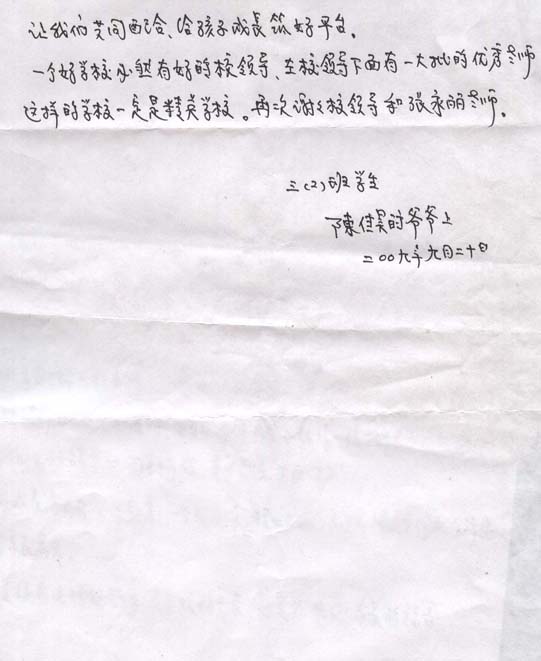 让我们共同配合、给孩子成长筑好平台。
一个好学校必然有好的校领导、在校领导下面有一大批的优秀老师
这样的学校一定是精英学校。再次谢谢校领导和张永丽老师。
三(2)班学生
陳佳昊的爷爷上
二00九年九月二十日